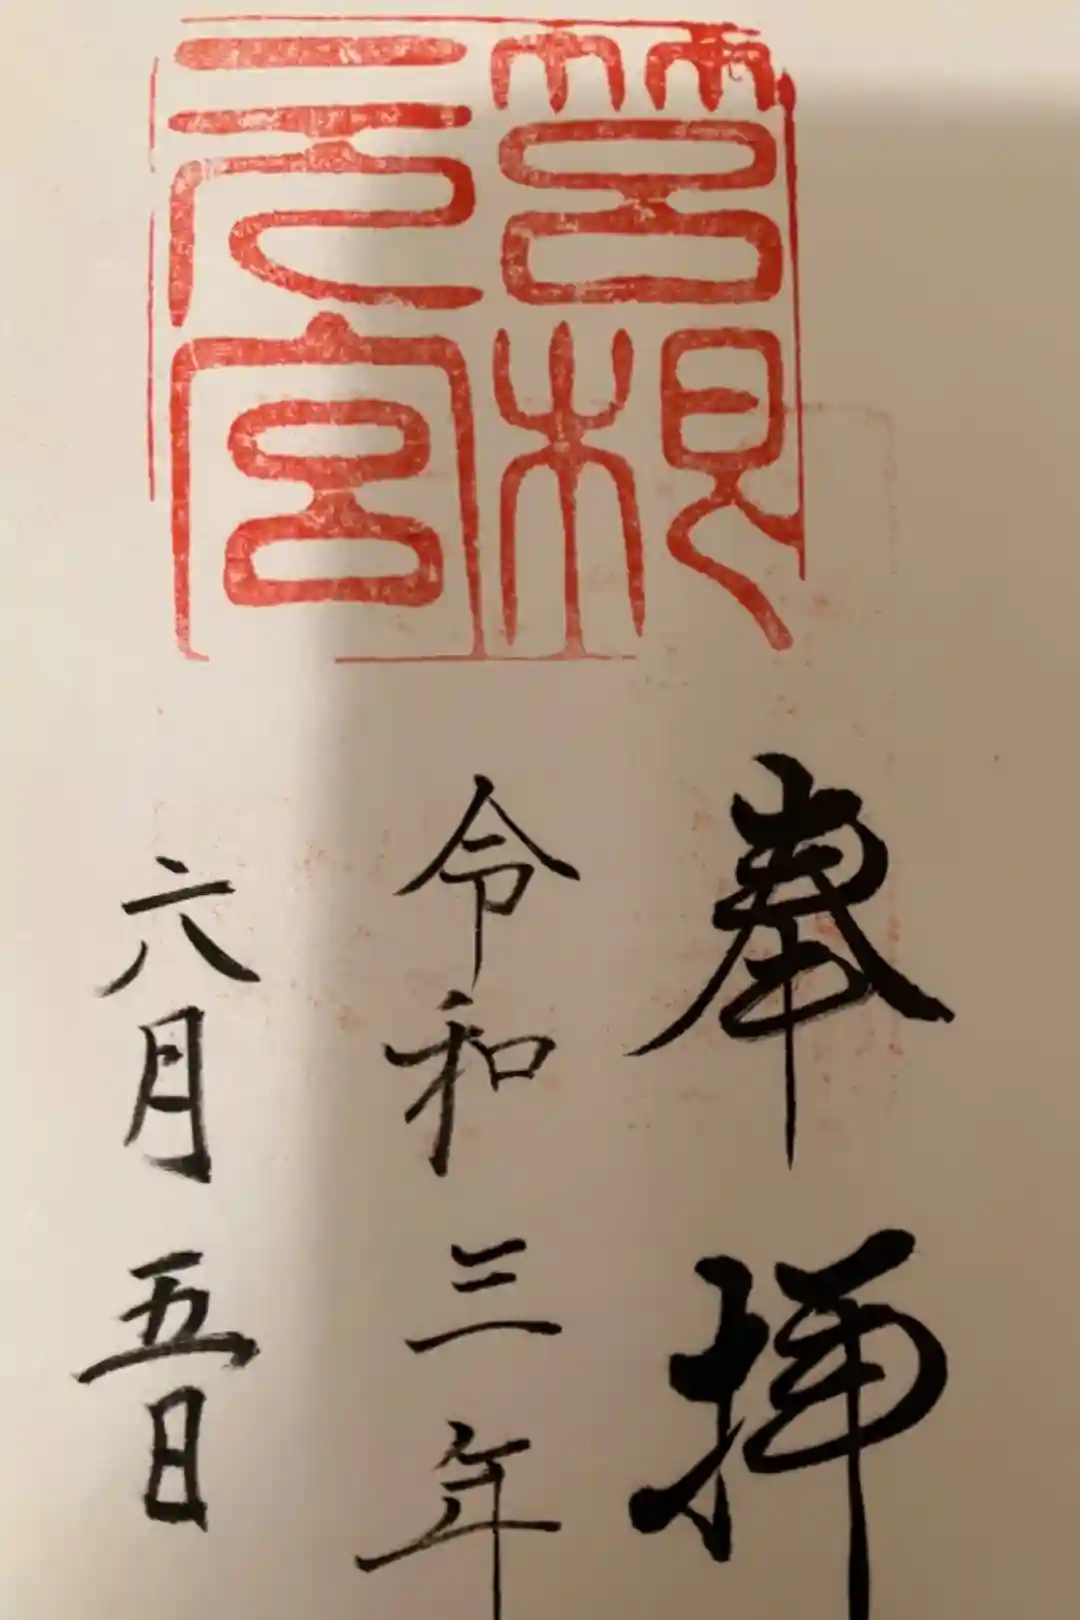 筥根
元宮
奉拝
令和三年
六月五日